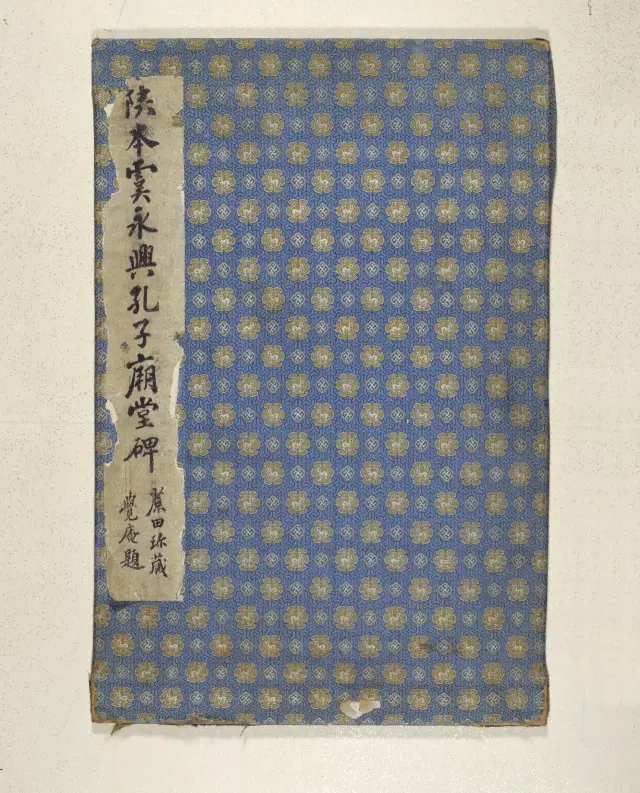 陕本虞永興孔子廟堂碑
蔗田珎藏
覺庵題